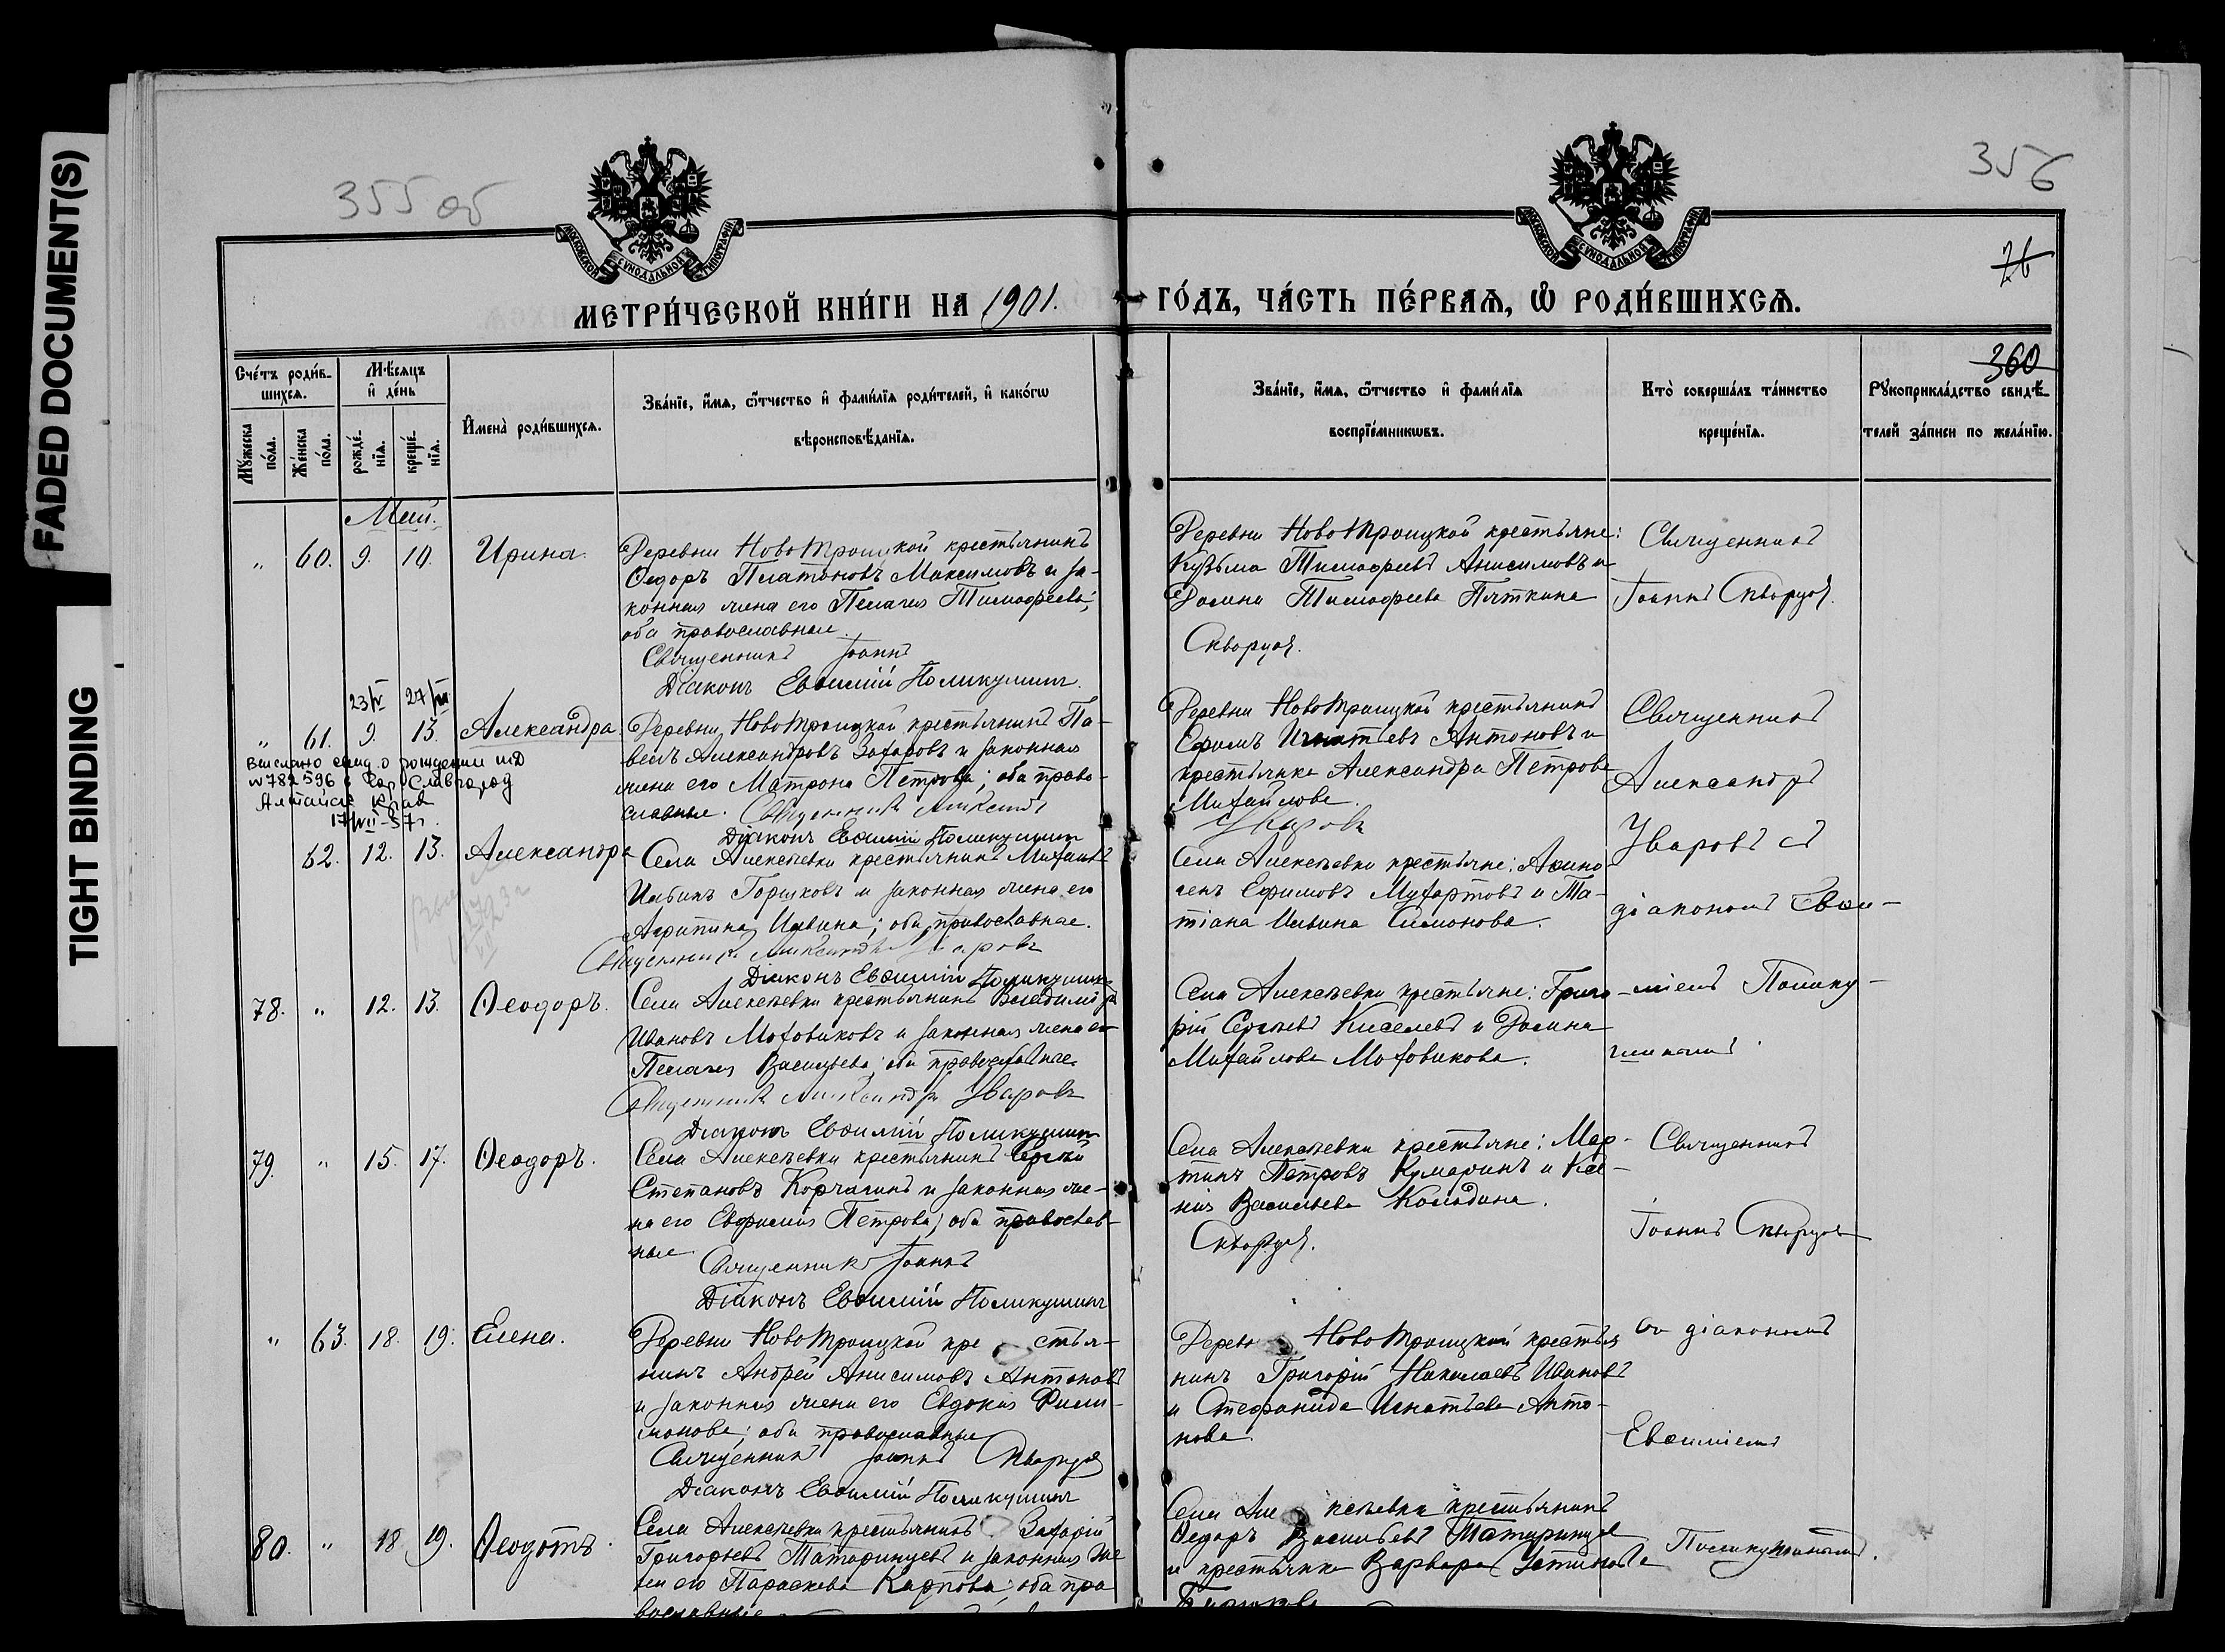 FADED DOCUMENT(S)
TIGHT BINDING
355 об
356
26
360
МОСКОВСКОЙ СѴНОДАЛЬНОЙ ТИПОГРАФІИ
МОСКОВСКОЙ СѴНОДАЛЬНОЙ ТИПОГРАФІИ
МЕТРИ́ЧЕСКОЙ КНИ́ГИ НА 1901.
ГО́ДЪ, ЧА́СТЬ ПЕ́РВАѦ, Ѡ҆ РОДИ́ВШИХСѦ.
Сче́тъ роди́в-
шихсѧ.
Мꙋ́жеска по́ла.
Же́нска по́ла.
Мѣ́сѧцъ
и҆ де́нь
рожде́-
нїѧ.
креще́-
нїѧ.
И҆мена̀ роди́вшихсѧ.
Зва́нїе, и҆́мѧ, ѻ҆́тчество и҆ фами́лїѧ роди́телей, и҆ како́гѡ
вѣроисповѣ́данїѧ.
Зва́нїе, и҆́мѧ, ѻ҆́тчество и҆ фами́лїѧ
воспрїе́мникѡвъ.
Кто̀ соверша́лъ та́инство
креще́нїѧ.
Рꙋкоприкла́дство свидѣ́-
телей за́писи по жела́нїю.
Май.
" 60. 9. 10. Ирина.
Деревни НовоТроицкой крестьянинъ
Ѳедоръ Платоновъ Максимовъ и за-
конная жена его Пелагея Тимофеева;
оба православные.
Священникъ Іоаннъ
Діаконъ Евѳимій Поликушинъ
Деревни НовоТроицкой крестьяне:
Кузьма Тимофеевъ Анисимовъ и
Домна Тимофеева Пяткина
Скворцов.
Священникъ
Іоаннъ Скворцов.
23/IV 27/IV
" 61. 9. 13. Александра.
Выслано свид. о рождении
№ 782596 в гор Славгород
Алтайск. края
17/VII-57г.
Деревни НовоТроицкой крестьянинъ Па-
велъ Александровъ Захаровъ и законная
жена его Матрона Петрова; оба право-
славные. Священникъ Александр
Діаконъ Евѳимій Поликушинъ
Деревни НовоТроицкой крестьянинъ
Ефимъ Игнатьевъ Антоновъ и
крестьянка Александра Петрова
Михайлова.
Уваровъ
Священникъ
Александръ
Уваровъ съ
діакономъ Евѳи-
62. 12. 13. Александра
Села Алексѣевки крестьянинъ Михаилъ
Горшковъ и законная жена его
Агрипина Ильина; оба православные.
Священникъ Александръ Уваровъ
Діаконъ Евѳимій Поликушинъ
Села Алексѣевки крестьяне:
Ефимовъ и Та-
тіана Ильина Симонова.
78. " 12. 13. Ѳеодоръ.
Села Алексѣевки крестьянинъ Владиміръ
Ивановъ Моховиковъ и законная жена его
Пелагея Васильева; оба православные.
Священникъ Александръ Уваровъ
Діаконъ Евѳимій Поликушинъ
Села Алексѣевки крестьяне: Григо-
рій Сергѣевъ Киселевъ и Домна
Михайлова Моховикова.
-міемъ Полику-
шинымъ.
79. " 15. 17. Ѳеодоръ.
Села Алексѣевки крестьянинъ Сергѣй
Степановъ Корчагинъ и законная же-
на его Евфимия Петрова; оба православ-
ные
Священникъ Іоаннъ
Діаконъ Евѳимій Поликушинъ
Села Алексѣевки крестьяне: Мар-
тинъ Петровъ Кумаринъ и Ксе-
нія Васильева Колядина.
Скворцов.
Священникъ
Іоаннъ Скворцов
" 63. 18. 19. Елена.
Деревни НовоТроицкой крестья-
нинъ Андрей Анисимовъ Антоновъ
и законная жена его Евдокия Фили-
монова; оба православные
Священникъ Іоаннъ Скворцов
Діаконъ Евѳимій Поликушинъ
Деревни НовоТроицкой крестья
нинъ Григорій Николаевъ Ивановъ
и Стефанида Игнатьева Анто-
нова.
со діакономъ
Евѳиміемъ
80. " 18. 19. Ѳеодотъ.
Села Алексѣевки крестьянинъ Захарій
Григорьевъ Татаринцевъ и законная же
на его Параскева Карпова; оба пра
вославные
Села Алексѣевки крестьянинъ
Ѳедоръ Васильевъ Татаринцев
и крестьянка Варвара Устинова
Поликушинымъ.